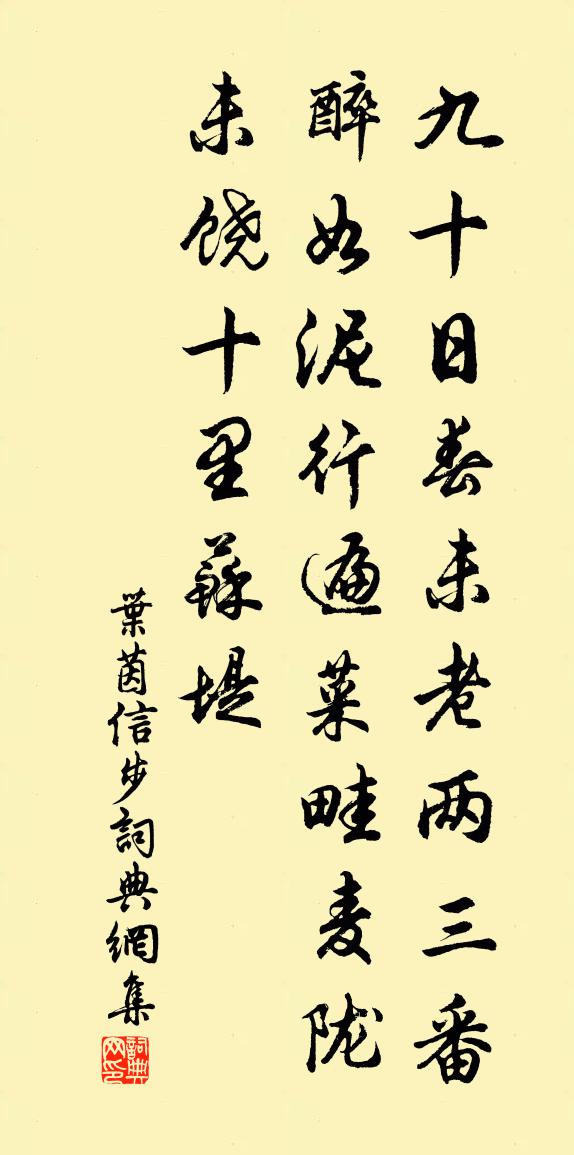 九十日春未老两三番
醉如泥行遍菜畦麦陇
未饶十里蘇堤
葉茵信步詞典網集
詞典网印